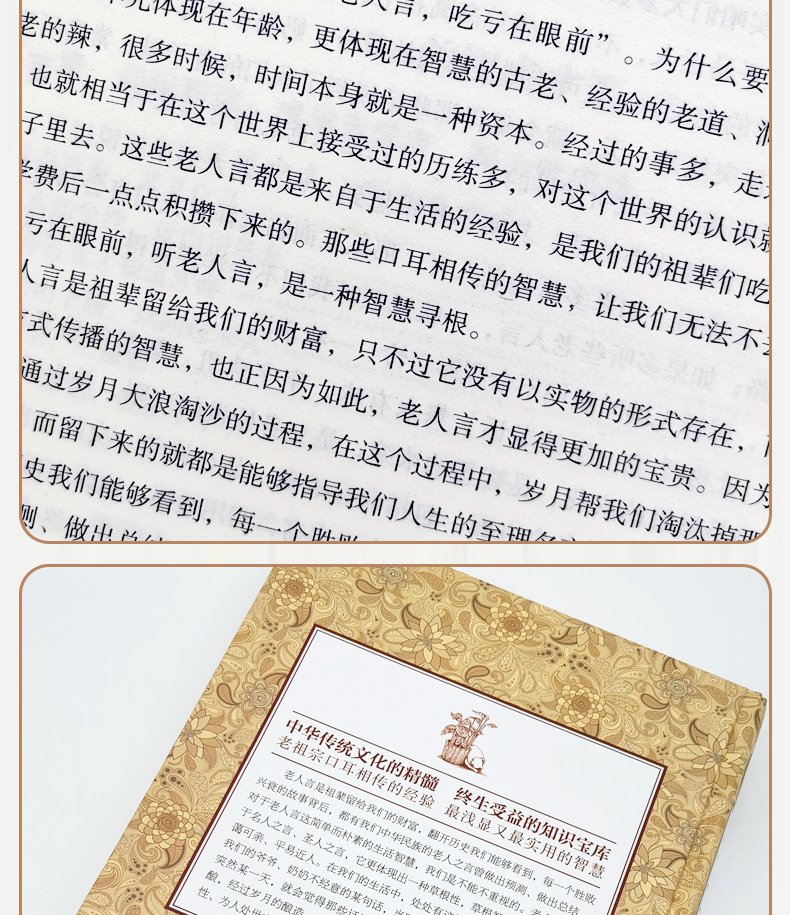 老人言，吃亏在眼前”。为什么要
体现在年龄，更体现在智慧的古老、经验的老道、洞
老的辣，很多时候，时间本身就是一种资本。经过的事多，走
也就相当于在这个世界上接受过的历练多，对这个世界的认识就
子里去。这些老人言都是来自于生活的经验，是我们的祖辈们吃
学费后一点点积攒下来的。那些口耳相传的智慧，让我们无法不
亏在眼前，听老人言，是一种智慧寻根。
人言是祖辈留给我们的财富，只不过它没有以实物的形式存在，
方式传播的智慧，也正因为如此，老人言才显得更加的宝贵。因为
通过岁月大浪淘沙的过程，在这个过程中，岁月帮我们淘汰掉那
而留下来的就都是能够指导我们人生的至理名言
史我们能够看到，每一个胜败
测、做出总结
中华传统文化的精髓 终生受益的知识宝库
老祖宗口耳相传的经验 最浅显又最实用的智慧
老人言是祖辈留给我们的财富，翻开历史我们能够看到，每一个胜败
兴衰的故事背后，都有我们中华民族的老人之言曾做出预测、做出总结
对于老人言这简单而朴素的生活智慧，我们是不能不重视的。老人
于名人之言、圣人之言，它更体现出一种草根性，草根
蔼可亲、平易近人。在我们的生活中，处处有这
我们的爷爷、奶奶不经意的某句话，当
突然某一天，就会觉得那些话
酿，经过岁月的酿造
性，为人处世